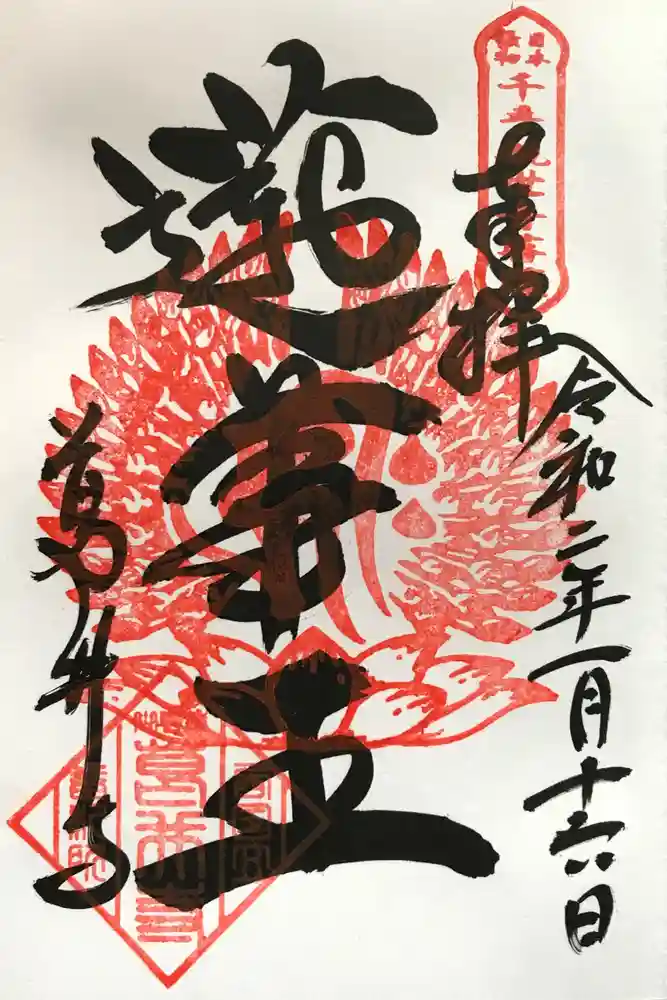 奉拝
令和二年一月十六日
蓮華王
葛井寺